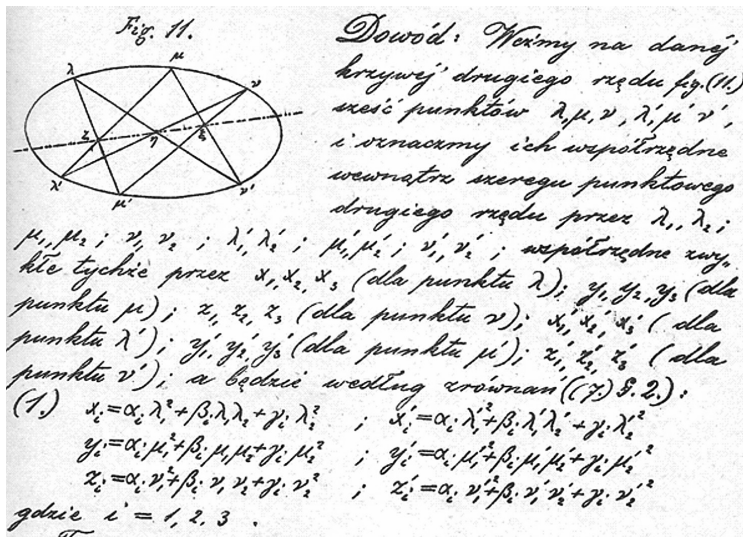 Fig. 11.
λ μ ν
ζ η ξ
λ' μ' ν'
Dowód: Weźmy na danéj
krzywéj drugiego rzędu fig. (11.)
sześć punktów λ, μ, ν, λ', μ', ν',
i oznaczmy ich współrzędne
wewnątrz szeregu punktowego
drugiego rzędu przez λ₁, λ₂ ;
μ₁, μ₂ ; ν₁, ν₂ ; λ₁', λ₂' ; μ₁', μ₂' ; ν₁', ν₂' ; współrzędne zwy„
kłe tychże przez x₁, x₂, x₃ (dla punktu λ); y₁, y₂, y₃ (dla
punktu μ); z₁, z₂, z₃ (dla punktu ν); x₁', x₂', x₃' (dla
punktu λ'); y₁', y₂', y₃' (dla punktu μ'); z₁', z₂', z₃' (dla
punktu ν'); a będzie według zrównań ((7.) §. 2.):
(1.) xᵢ = αᵢ λ₁² + βᵢ λ₁ λ₂ + γᵢ λ₂² ; xᵢ' = αᵢ λ₁'² + βᵢ λ₁' λ₂' + γᵢ λ₂'²
yᵢ = αᵢ μ₁² + βᵢ μ₁ μ₂ + γᵢ μ₂² ; yᵢ' = αᵢ μ₁'² + βᵢ μ₁' μ₂' + γᵢ μ₂'²
zᵢ = αᵢ ν₁² + βᵢ ν₁ ν₂ + γᵢ ν₂² ; zᵢ' = αᵢ ν₁'² + βᵢ ν₁' ν₂' + γᵢ ν₂'²
gdzie i = 1, 2, 3 .